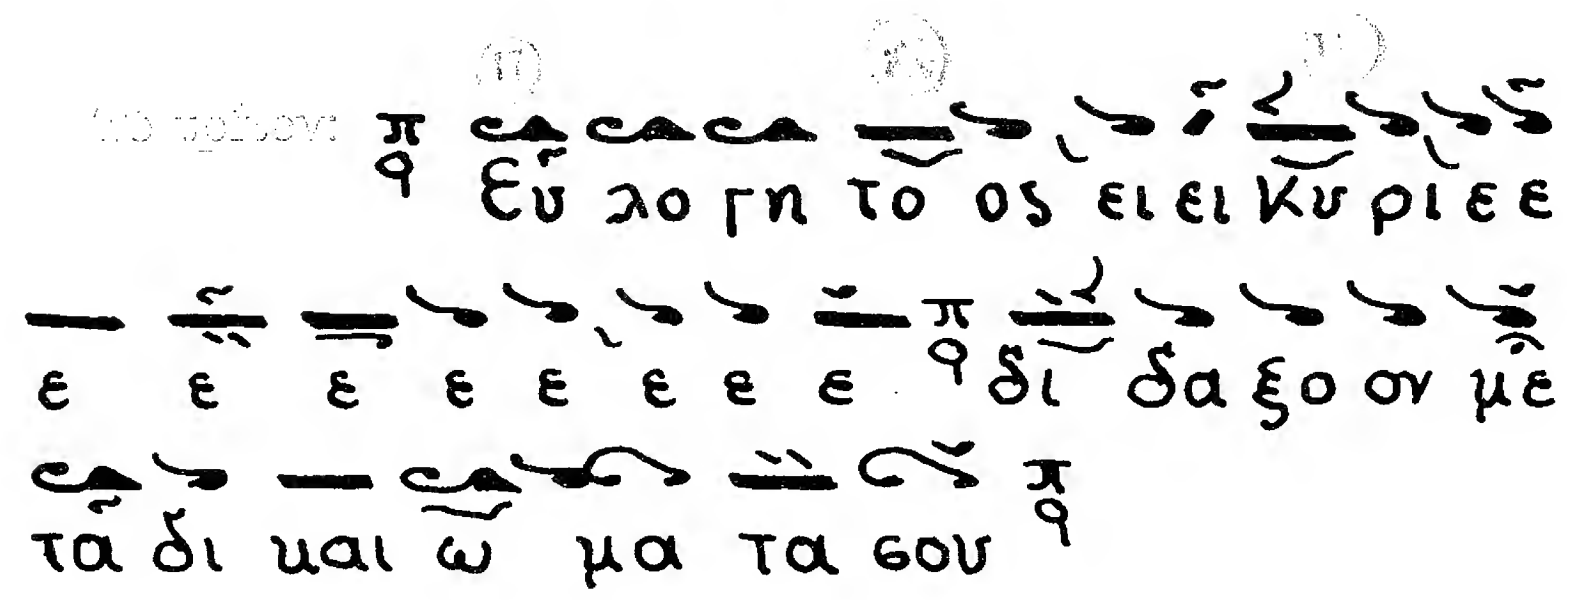 π ϙ Ευ λο γη το ος ει ει Κυ ρι ε ε
ε ε ε ε ε ε ε ε π ϙ δι δα ξο ον με
τα δι και ω μα τα σου π ϙ